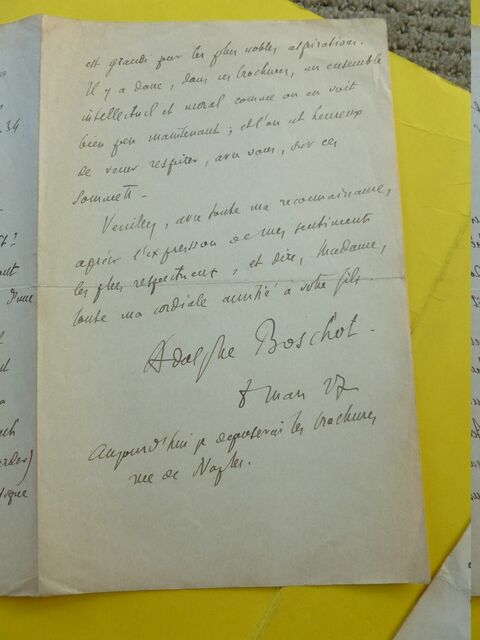 est grandi par les plus nobles aspirations.
Il y a donc, dans ces brochures, un ensemble
intellectuel et moral comme on en voit
bien peu maintenant ; et l'on est heureux
de venir respirer, avec vous, sur ces
sommets.
Veuillez, avec toute ma reconnaissance,
agréer l'expression de mes sentiments
les plus respectueux ; et dire, Madame,
toute ma cordiale amitié à votre fils.
Adolphe Boschot.
8 mars 27
Aujourd'hui je déposerai les brochures
rue de Naples.
.34